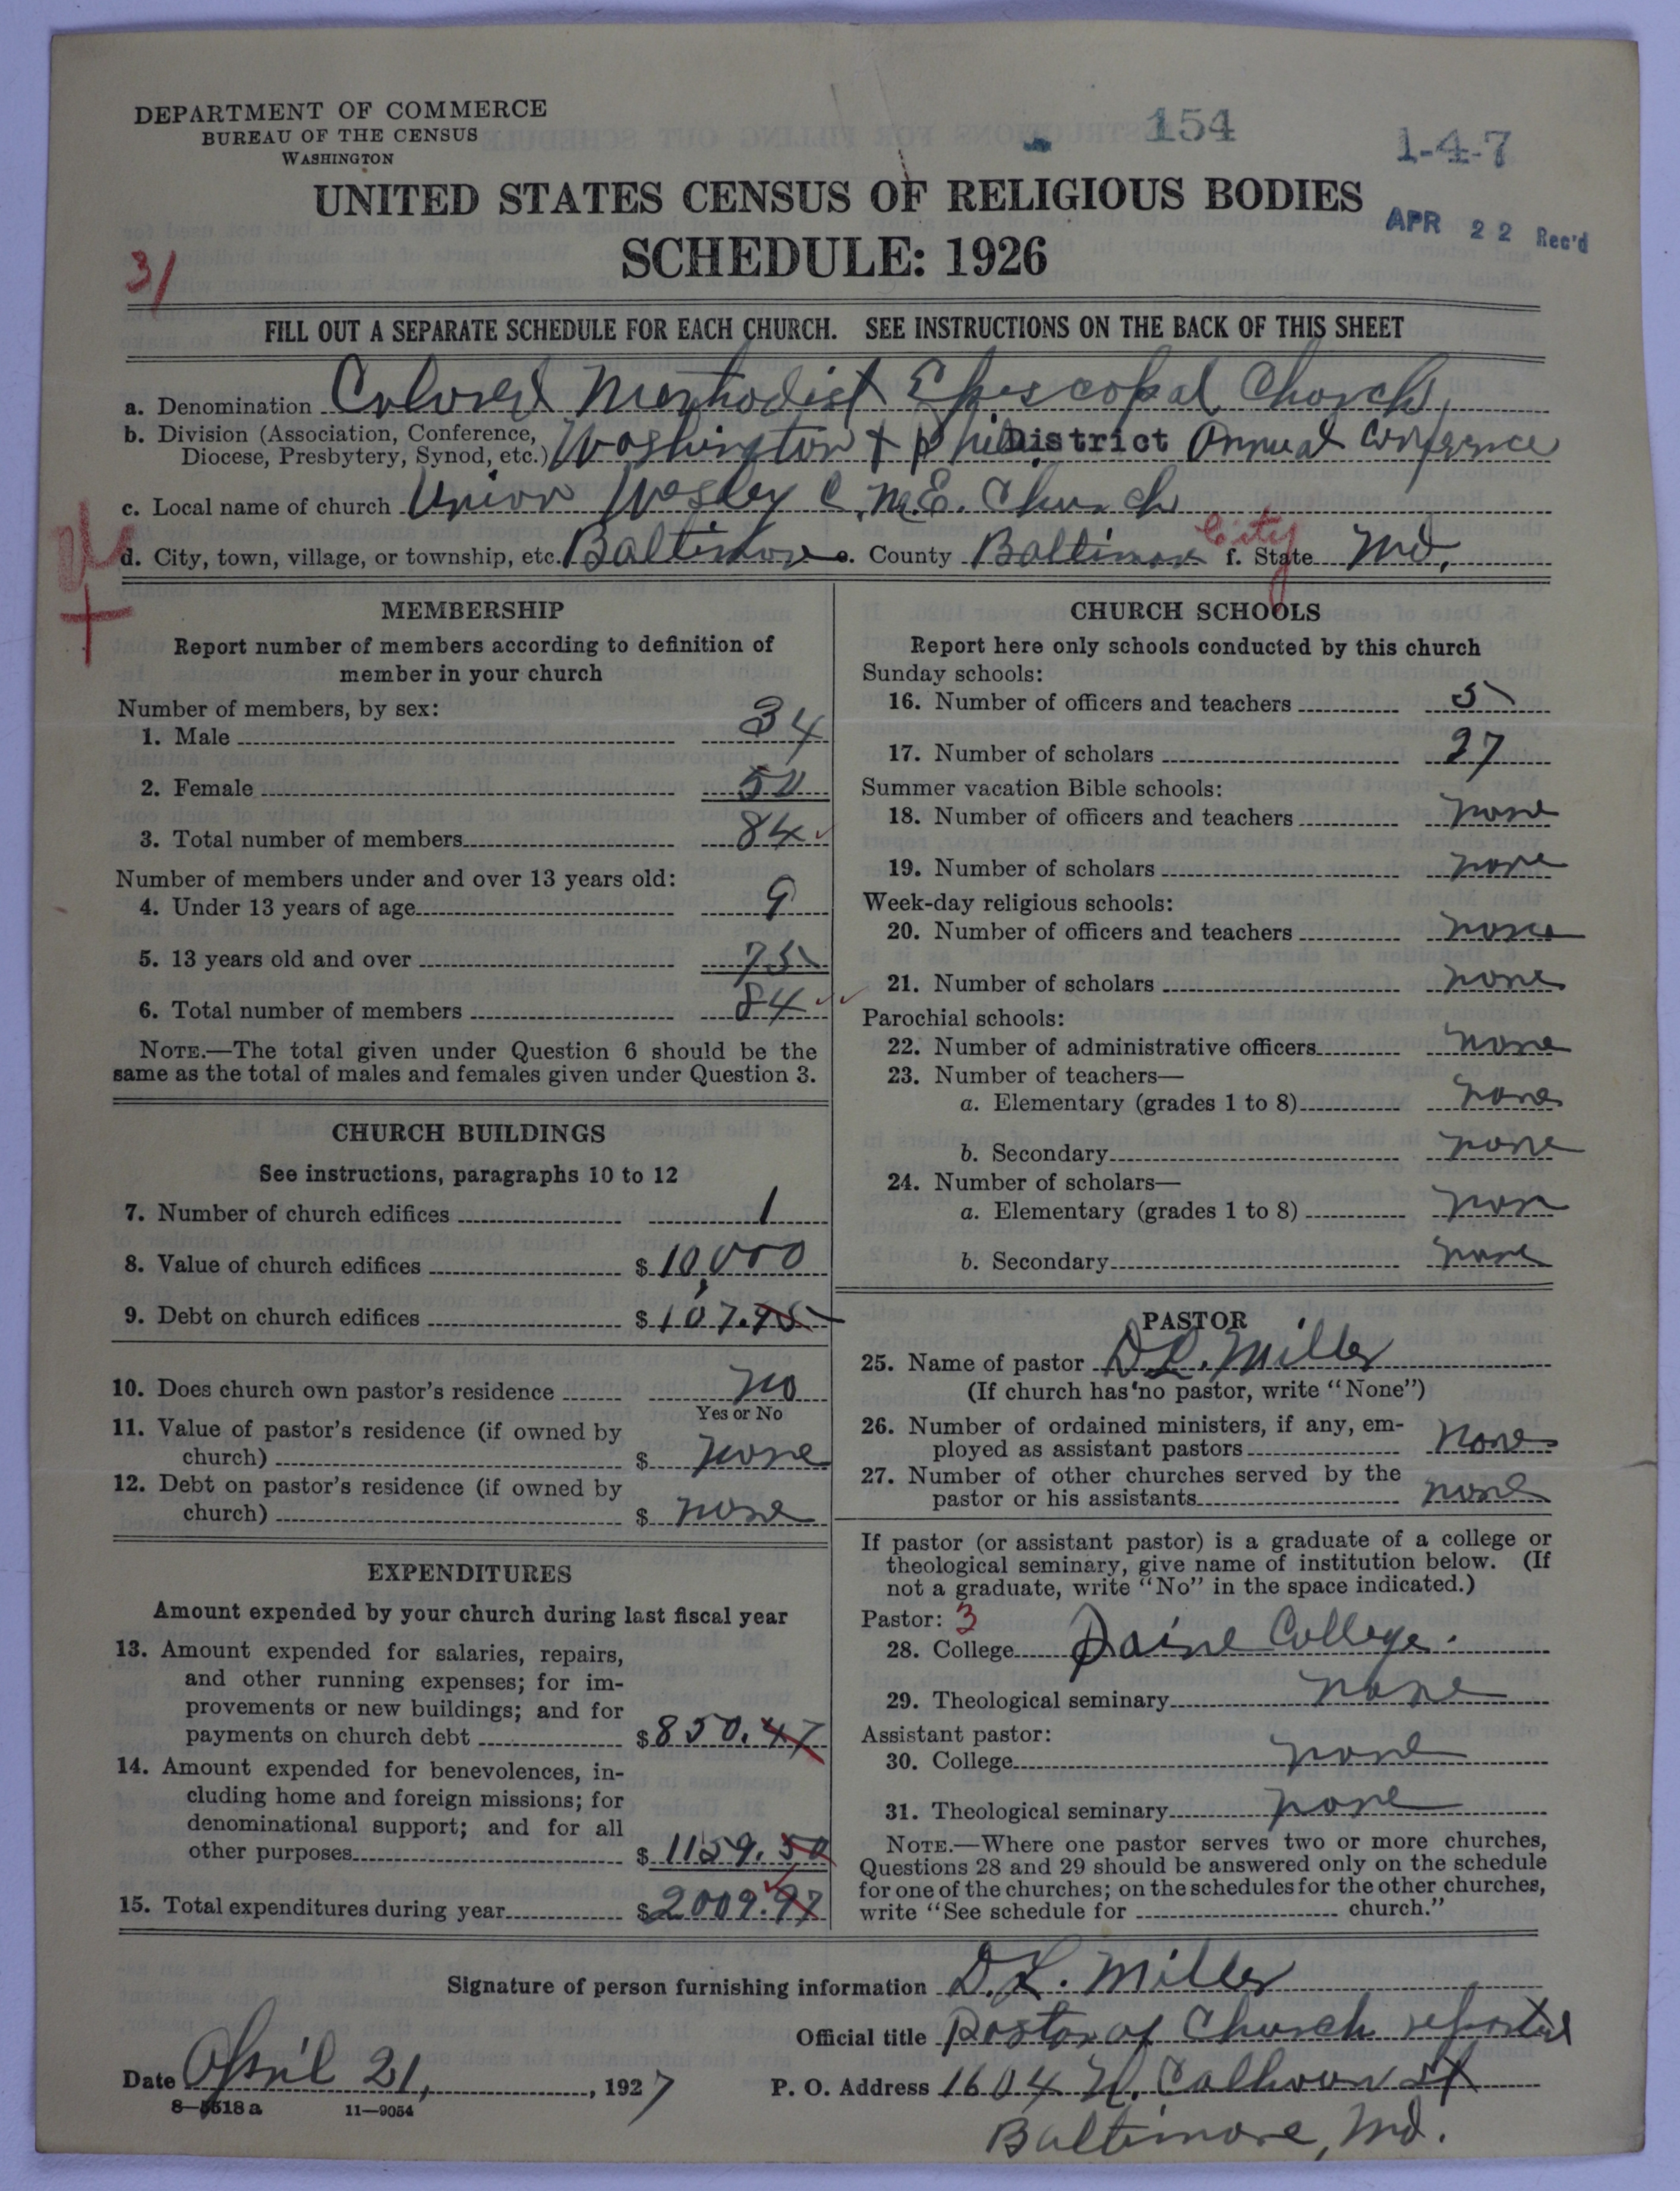 DEPARTMENT OF COMMERCE
BUREAU OF THE CENSUS
WASHINGTON
154
1-4-7
UNITED STATES CENSUS OF RELIGIOUS BODIES
SCHEDULE: 1926
APR 22 Rec'd
31
FILL OUT A SEPARATE SCHEDULE FOR EACH CHURCH. SEE INSTRUCTIONS ON THE BACK OF THIS SHEET
a. Denomination Colored Methodist Episcopal Church
b. Division (Association, Conference,
Diocese, Presbytery, Synod, etc.) Washington & Phila District Annual Conference
c. Local name of church Union Wesley C.M.E. Church
d. City, town, village, or township, etc. Baltimore e. County Baltimore City f. State Md.
MEMBERSHIP
Report number of members according to definition of
member in your church
Number of members, by sex:
1. Male 34
2. Female 50
3. Total number of members 84
Number of members under and over 13 years old:
4. Under 13 years of age 9
5. 13 years old and over 75
6. Total number of members 84
NOTE.—The total given under Question 6 should be the
same as the total of males and females given under Question 3.
CHURCH BUILDINGS
See instructions, paragraphs 10 to 12
7. Number of church edifices 1
8. Value of church edifices $10,000
9. Debt on church edifices $107.95
10. Does church own pastor's residence no
Yes or No
11. Value of pastor's residence (if owned by
church) $ none
12. Debt on pastor's residence (if owned by
church) $ none
EXPENDITURES
Amount expended by your church during last fiscal year
13. Amount expended for salaries, repairs,
and other running expenses; for im-
provements or new buildings; and for
payments on church debt $850.47
14. Amount expended for benevolences, in-
cluding home and foreign missions; for
denominational support; and for all
other purposes $1159.50
15. Total expenditures during year $2009.97
CHURCH SCHOOLS
Report here only schools conducted by this church
Sunday schools:
16. Number of officers and teachers 5
17. Number of scholars 27
Summer vacation Bible schools:
18. Number of officers and teachers none
19. Number of scholars none
Week-day religious schools:
20. Number of officers and teachers none
21. Number of scholars none
Parochial schools:
22. Number of administrative officers none
23. Number of teachers—
a. Elementary (grades 1 to 8) none
b. Secondary none
24. Number of scholars—
a. Elementary (grades 1 to 8) non
b. Secondary none
PASTOR
25. Name of pastor D.L. Miller
(If church has no pastor, write "None")
26. Number of ordained ministers, if any, em-
ployed as assistant pastors None
27. Number of other churches served by the
pastor or his assistants none
If pastor (or assistant pastor) is a graduate of a college or
theological seminary, give name of institution below. (If
not a graduate, write "No" in the space indicated.)
Pastor: 3
28. College Paine College.
29. Theological seminary none
Assistant pastor:
30. College none
31. Theological seminary none
NOTE.—Where one pastor serves two or more churches,
Questions 28 and 29 should be answered only on the schedule
for one of the churches; on the schedules for the other churches,
write "See schedule for church."
Signature of person furnishing information D.L. Miller
Official title Pastor of Church reported
Date April 21, 1927 P. O. Address 1604 N. Calhoun St
8-5518a 11-9054
Baltimore, Md.